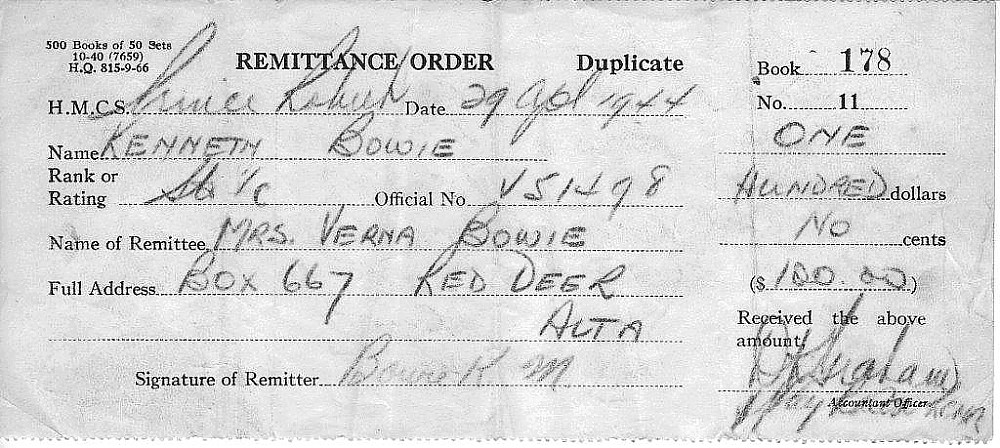 500 Books of 50 Sets
10-40 (7659)
H.Q. 815-9-66
REMITTANCE ORDER Duplicate
Book 178
No. 11
H.M.C.S. Prince Robert Date 29 Apl 1944
Name KENNETH BOWIE
Rank or
Rating Sto 1/c Official No. V51498
Name of Remittee MRS. VERNA BOWIE
Full Address BOX 667 RED DEER
ALTA
Signature of Remitter Bowie K M
ONE
HUNDRED dollars
NO cents
($ 100.00)
Received the above
amount
Graham
Accountant Officer